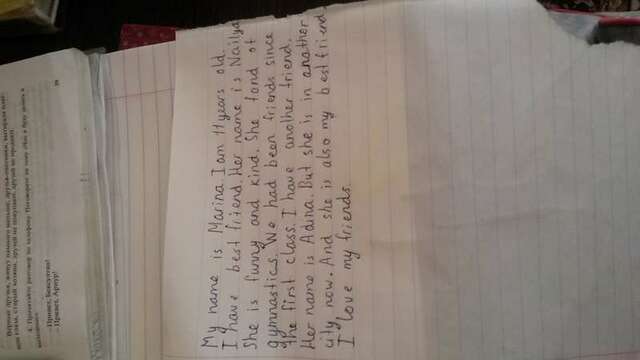 Верные друзья, живут намного меньше, друзья-охотники, вытирала пла-
ком глаза, старый хозяин, друзей не покупают, друзей не продают.
4. Прочитайте разговор по телефону. Поговорите на тему «Что я буду делать в
выходные».
– Привет, Бексултан!
– Привет, Арнур!
39
My name is Marina. I am 11 years old.
I have best friend. Her name is Nailya
She is funny and kind. She fond of
gymnastics. We had been friends since
the first class. I have another friend.
Her name is Adina. But she is in another
city now. And she is also my best friend
I love my friends.